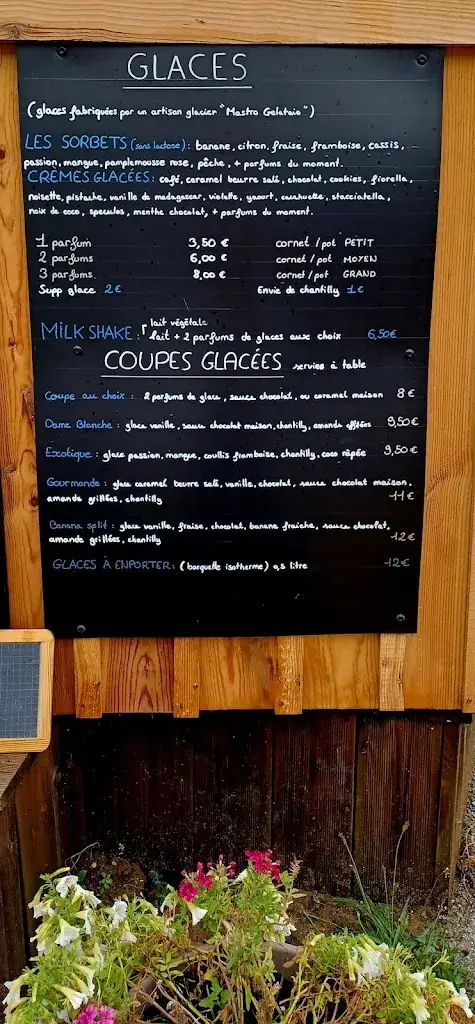 GLACES
(glaces fabriquées par un artisan glacier "Mastro Gelataio")
LES SORBETS (sans lactose) : banane, citron, fraise, framboise, cassis,
passion, mangue, pamplemousse rose, pêche, + parfums du moment.
CRÈMES GLACÉES : café, caramel beurre salé, chocolat, cookies, fiorella,
noisette, pistache, vanille de madagascar, violette, yaourt, cacahuette, stracciatella,
noix de coco, speculos, menthe chocolat, + parfums du moment.
1 parfum 3,50 € cornet / pot PETIT
2 parfums 6,00 € cornet / pot MOYEN
3 parfums 8,00 € cornet / pot GRAND
Supp glace 2€ Envie de chantilly 1€
lait végétale
MILK SHAKE : lait + 2 parfums de glaces aux choix 6,50€
COUPES GLACÉES servies à table
Coupe au choix : 2 parfums de glace, sauce chocolat, ou caramel maison 8€
Dame Blanche : glace vanille, sauce chocolat maison, chantilly, amande effilées 9,50€
Exotique : glace passion, mangue, coullis framboise, chantilly, coco râpée 9,50€
Gourmande : glace caramel beurre salé, vanille, chocolat, sauce chocolat maison,
amande grillées, chantilly 11€
Banana split : glace vanille, fraise, chocolat, banane fraiche, sauce chocolat,
amande grillées, chantilly 12€
GLACES À ENPORTER : (barquette isotherme) 0,5 litre 12€